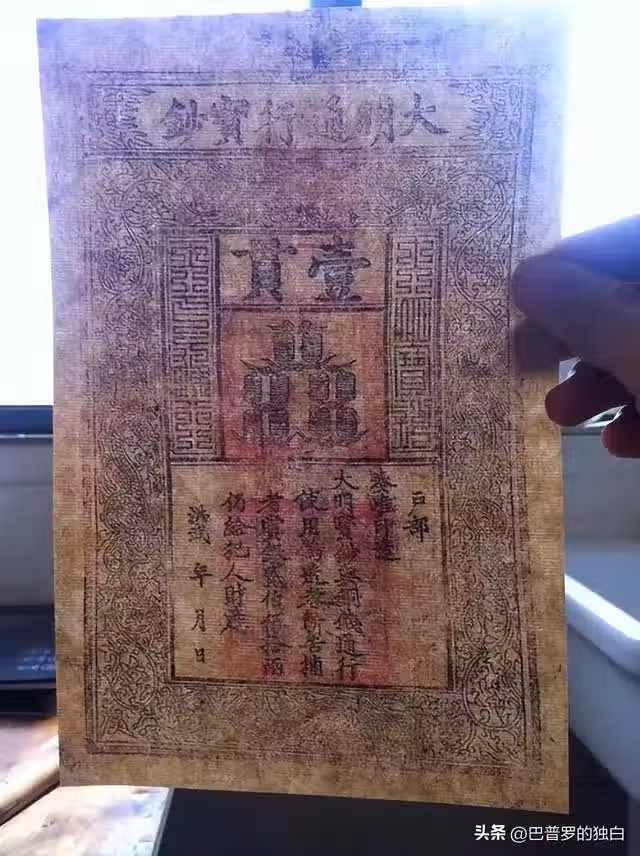 大明通行寶鈔
壹貫
戶部
奏准印造
大明寶鈔與銅錢通行
使用偽造者斬告捕
者賞銀貳佰伍拾兩
仍給犯人財產
洪武 年 月 日
头条 @巴普罗的独白